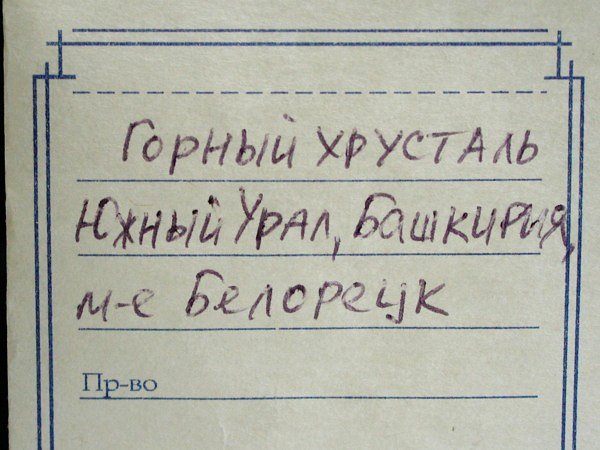 Горный хрусталь
Южный Урал, Башкирия,
м-е Белорецк
Пр-во